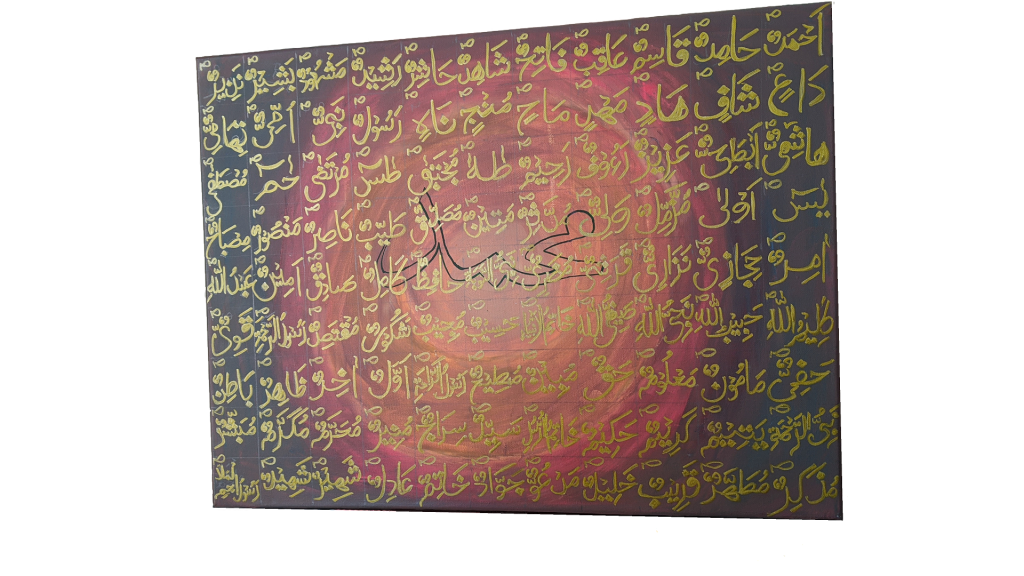 اَحْمَدٌ حَامِدٌ قَاسِمٌ عَاقِبٌ فَاتِحٌ شَاهِدٌ حَاشِرٌ رَشِيدٌ مَشْهُودٌ بَشِيرٌ نَذِيرٌ
دَاعٍ شَافٍ هَادٍ مَهْدٍ مَاحٍ مُنْجٍ نَاهٍ رَسُولٌ نَبِيٌّ اُمِّيٌّ تِهَامِيٌّ
هَاشِمِيٌّ اَبْطَحِيٌّ عَزِيزٌ رَءُوفٌ رَحِيمٌ طٰهٰ مُجْتَبٰى طٰسٓ مُرْتَضٰى حٰمٓ مُصْطَفٰى
يٰسٓ اَوْلٰى مُزَّمِّلٌ وَلِيٌّ مُدَّثِّرٌ مَتِينٌ مُصَدِّقٌ طَيِّبٌ نَاصِرٌ مَنْصُورٌ مِصْبَاحٌ
محمد
اٰمِرٌ حِجَازِيٌّ نِزَارِيٌّ حَافِظٌ كَامِلٌ صَادِقٌ اَمِينٌ عَبْدُ اللّٰهِ
كَلِيمُ اللّٰهِ حَبِيبُ اللّٰهِ نَجِيُّ اللّٰهِ صَفِيُّ اللّٰهِ حَسِيبٌ مُجِيبٌ شَكُورٌ مُقْتَصِدٌ رَسُولُ الرَّحْمَةِ قَوِيٌّ
حَفِيٌّ مَامُونٌ مَعْلُومٌ حَقٌّ مُبِينٌ مُطِيعٌ اَوَّلٌ اٰخِرٌ ظَاهِرٌ بَاطِنٌ
نَبِيُّ الرَّحْمَةِ يَتِيمٌ كَرِيمٌ حَكِيمٌ سَيِّدٌ سِرَاجٌ مُنِيرٌ مُحَرَّمٌ مُكَرَّمٌ مُبَشِّرٌ
مُذَكِّرٌ مُطَهَّرٌ قَرِيبٌ خَلِيلٌ جَوَادٌ خَاتِمٌ عَادِلٌ شَهِيرٌ شَهِيدٌ